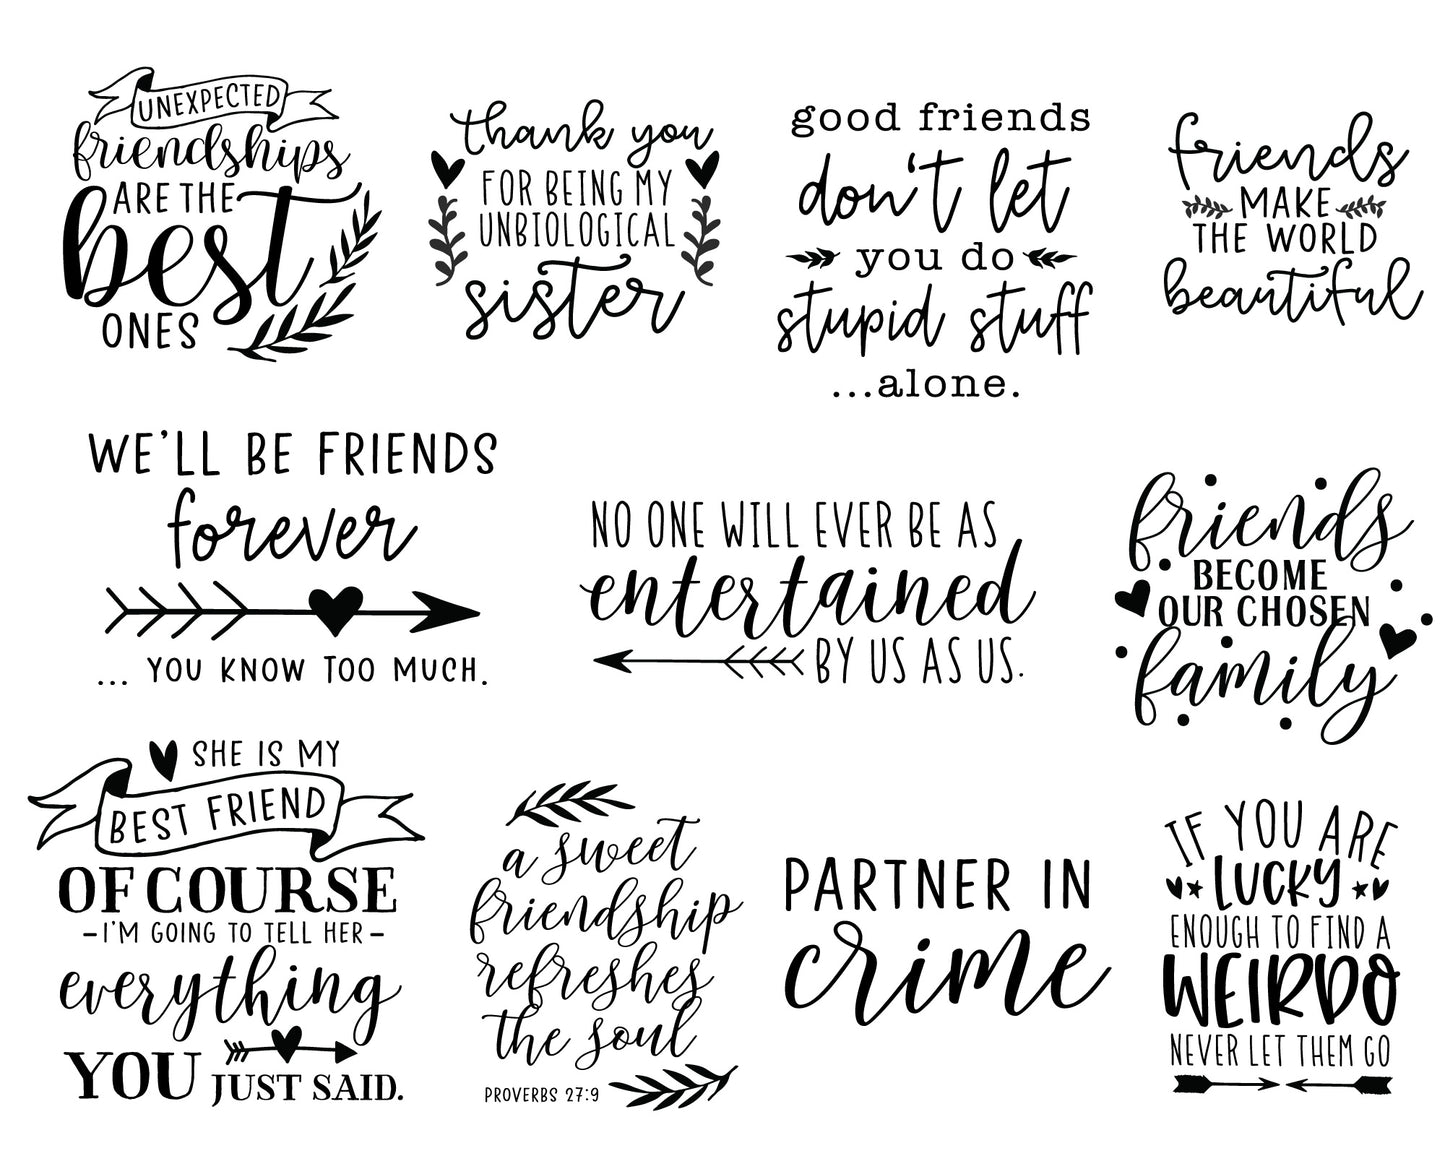 UNEXPECTED
friendships
ARE THE
best
ONES
thank you
FOR BEING MY
UNBIOLOGICAL
sister
good friends
don't let
you do
stupid stuff
...alone.
friends
MAKE
THE WORLD
beautiful
WE'LL BE FRIENDS
forever
... YOU KNOW TOO MUCH.
NO ONE WILL EVER BE AS
entertained
BY US AS US.
friends
BECOME
OUR CHOSEN
family
SHE IS MY
BEST FRIEND
OF COURSE
-I'M GOING TO TELL HER-
everything
YOU JUST SAID.
a sweet
friendship
refreshes
the soul
PROVERBS 27:9
PARTNER IN
crime
IF YOU ARE
LUCKY
ENOUGH TO FIND A
WEIRDO
NEVER LET THEM GO